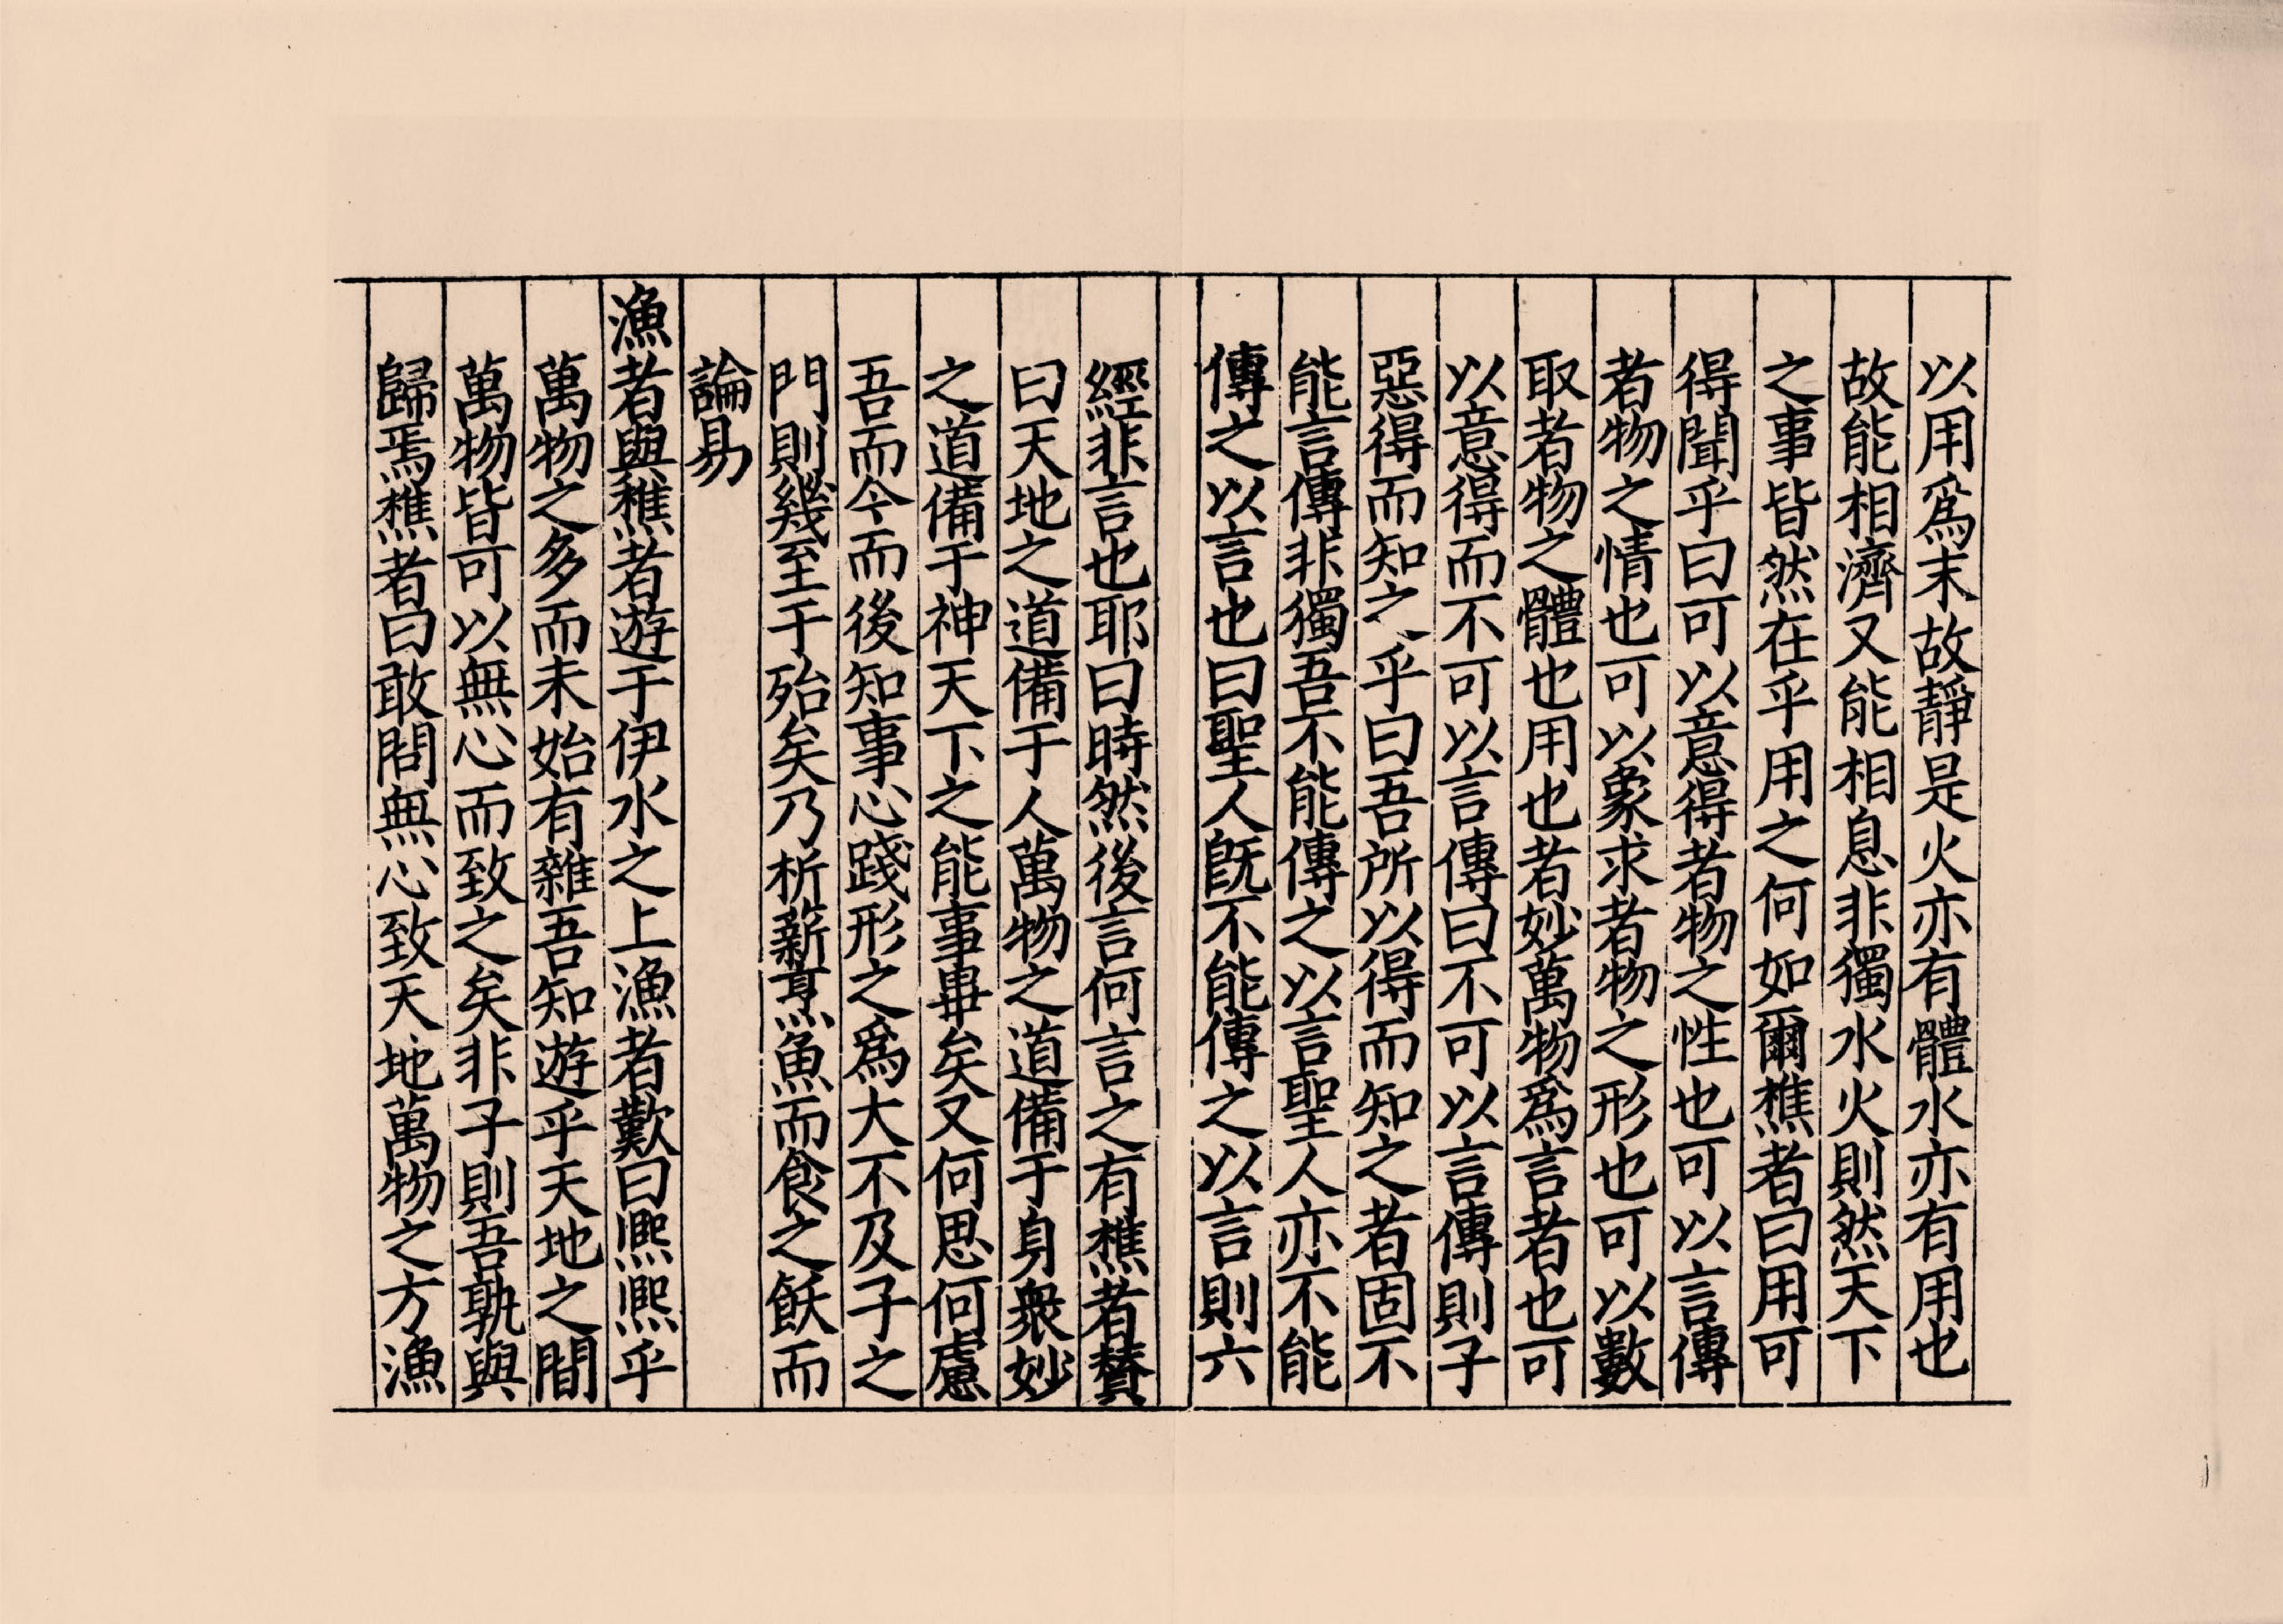 以用爲末故靜是火亦有體水亦有用也
故能相濟又能相息非獨水火則然天下
之事皆然在乎用之何如爾樵者曰用可
得聞乎曰可以意得者物之性也可以言傳
者物之情也可以象求者物之形也可以數
取者物之體也用也者妙萬物爲言者也可
以意得而不可以言傳曰不可以言傳則子
惡得而知之乎曰吾所以得而知之者固不
能言傳非獨吾不能傳之以言聖人亦不能
傳之以言也曰聖人旣不能傳之以言則六
經非言也耶曰時然後言何言之有樵者贊
曰天地之道備于人萬物之道備于身衆妙
之道備于神天下之能事畢矣又何思何慮
吾而今而後知事心踐形之爲大不及子之
門則幾至于殆矣乃析薪烹魚而食之飫而
論易
漁者與樵者遊于伊水之上漁者歎曰熙熙乎
萬物之多而未始有雜吾知遊乎天地之間
萬物皆可以無心而致之矣非子則吾孰與
歸焉樵者曰敢問無心致天地萬物之方漁